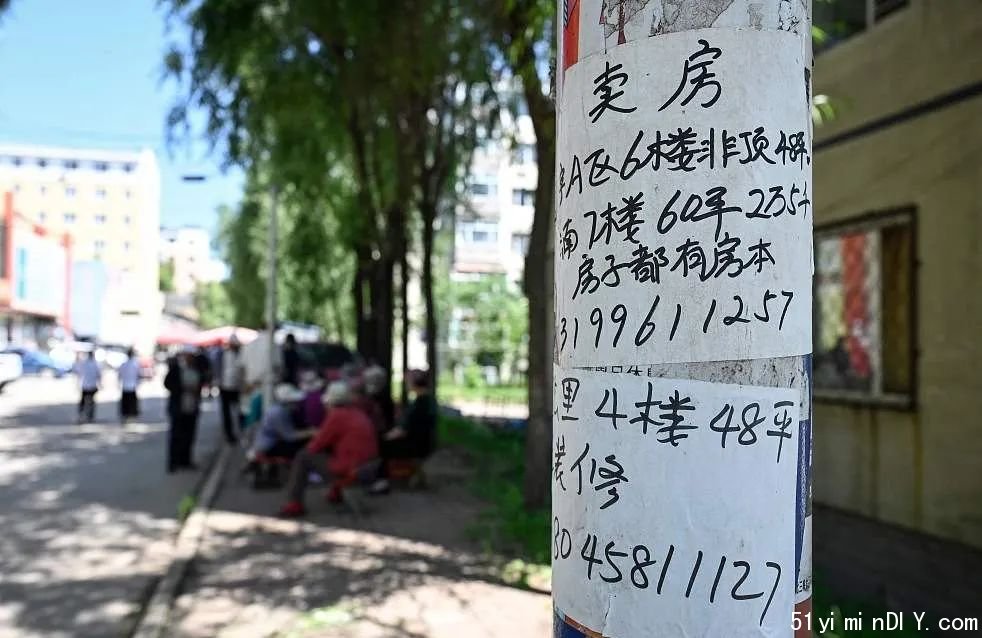 卖房
A区6楼非顶48平
南7楼60平2万5千
房子都有房本
3199611257
里4楼48平
装修
8045811127
51yi mi nDI Y. com